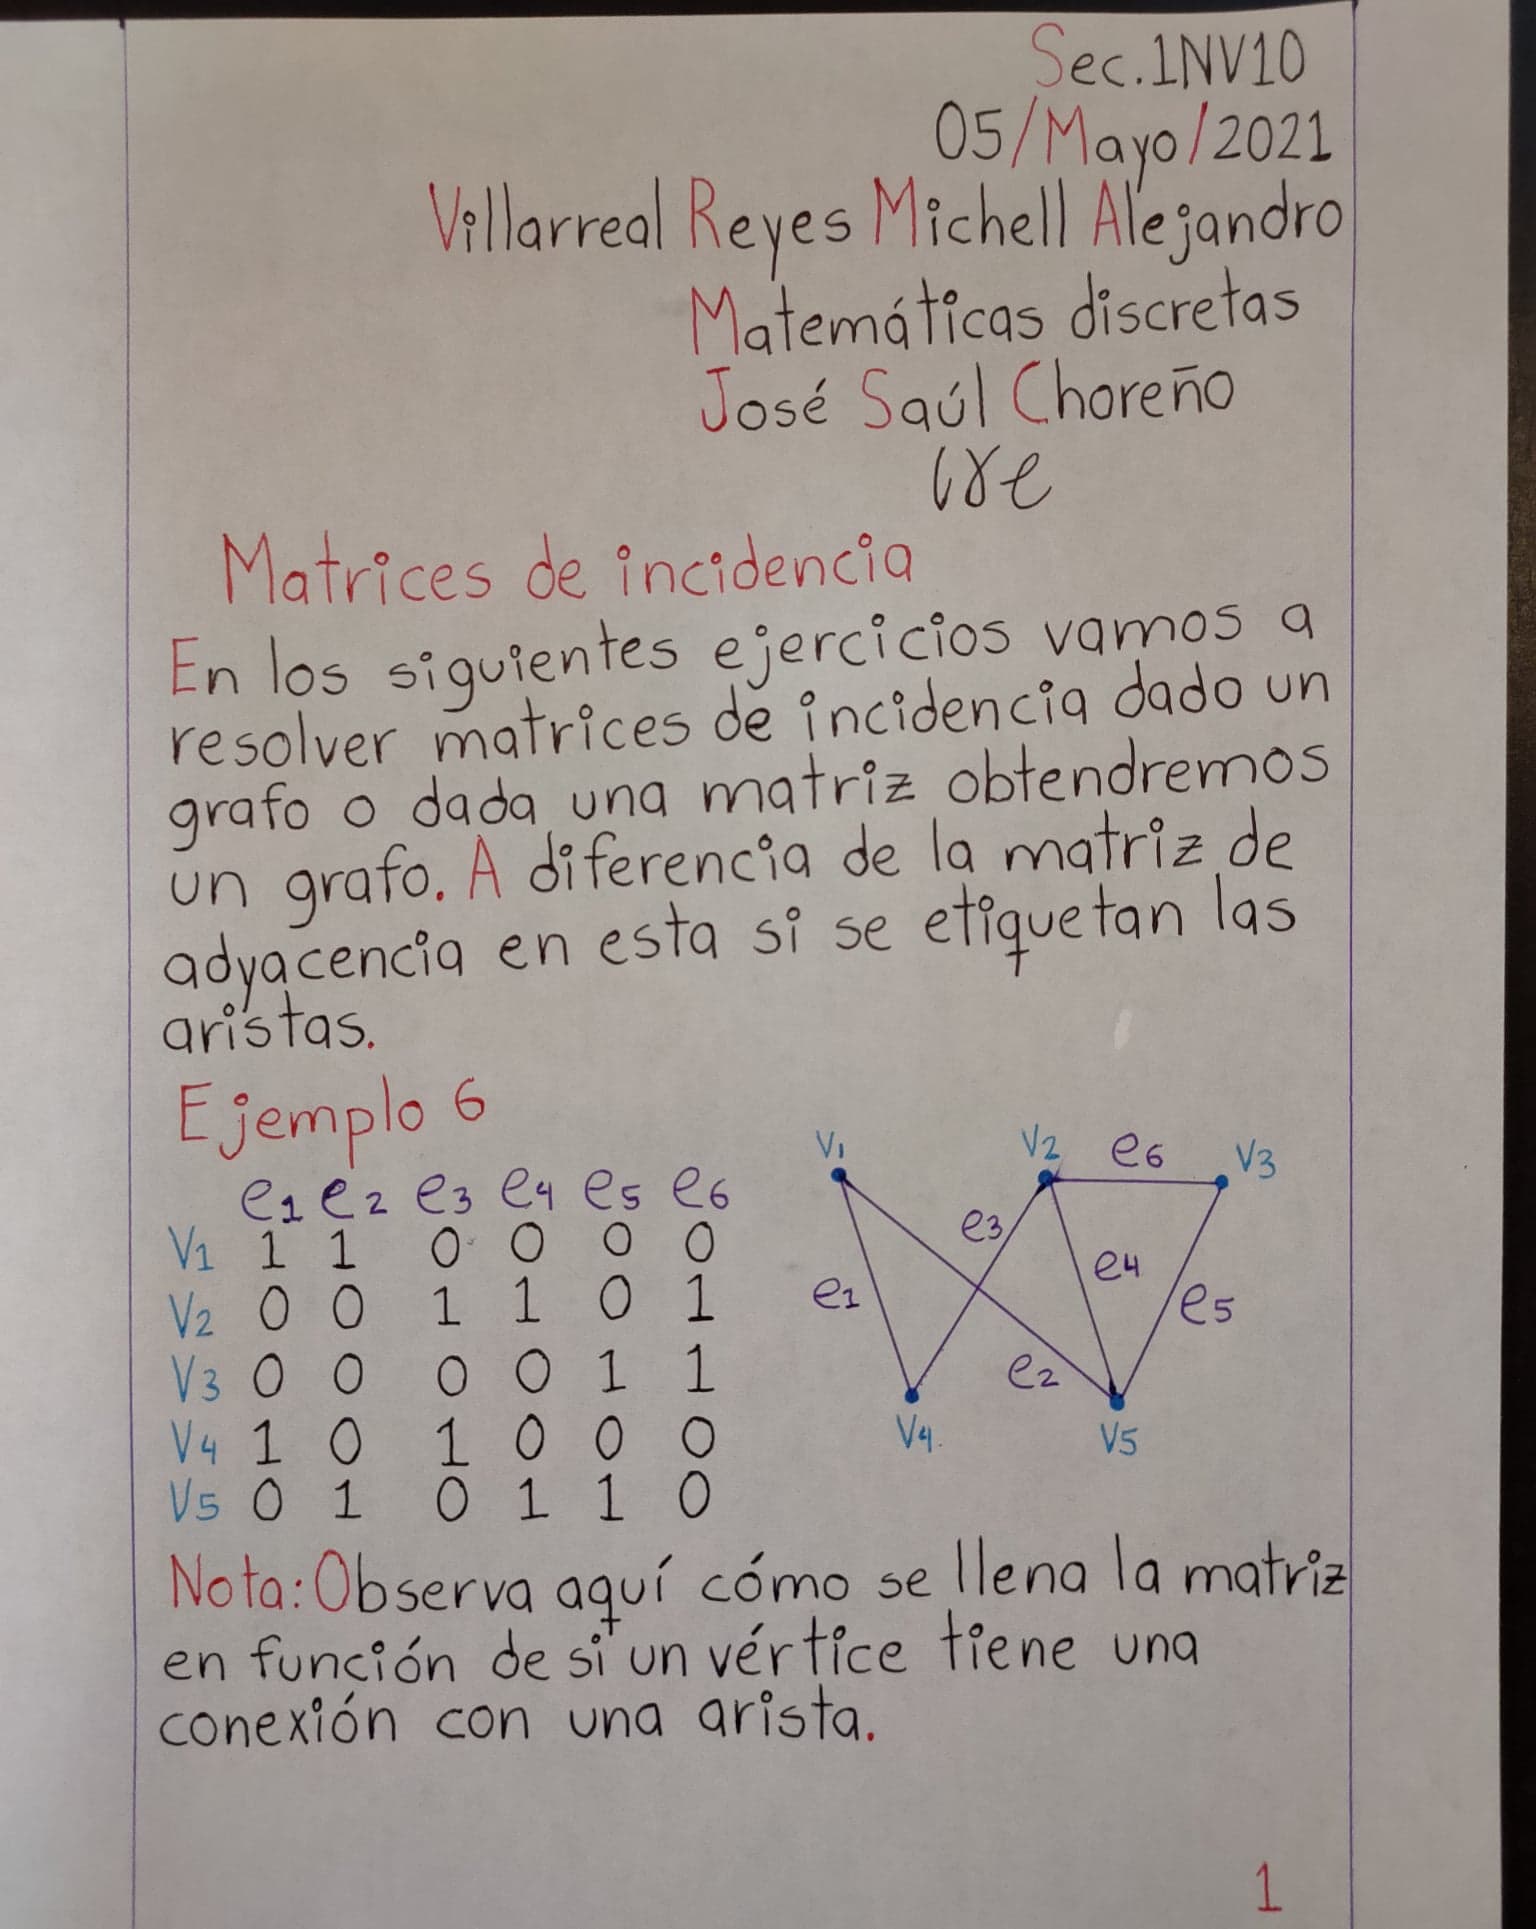 Sec.1NV10
05/Mayo/2021
Villarreal Reyes Michell Alejandro
Matemáticas discretas
José Saúl Choreño
Matrices de incidencia
En los siguientes ejercicios vamos a
resolver matrices de incidencia dado un
grafo o dada una matriz obtendremos
un grafo. A diferencia de la matriz de
adyacencia en esta si se etiquetan las
aristas.
Ejemplo 6
e1 e2 e3 e4 e5 e6
V1 1 1 0 0 0 0
V2 0 0 1 1 0 1
V3 0 0 0 0 1 1
V4 1 0 1 0 0 0
V5 0 1 0 1 1 0
V1 V2 e6 V3
e3
e4
e1 e5
e2
V4 V5
Nota: Observa aquí cómo se llena la matriz
en función de si un vértice tiene una
conexión con una arista.
1